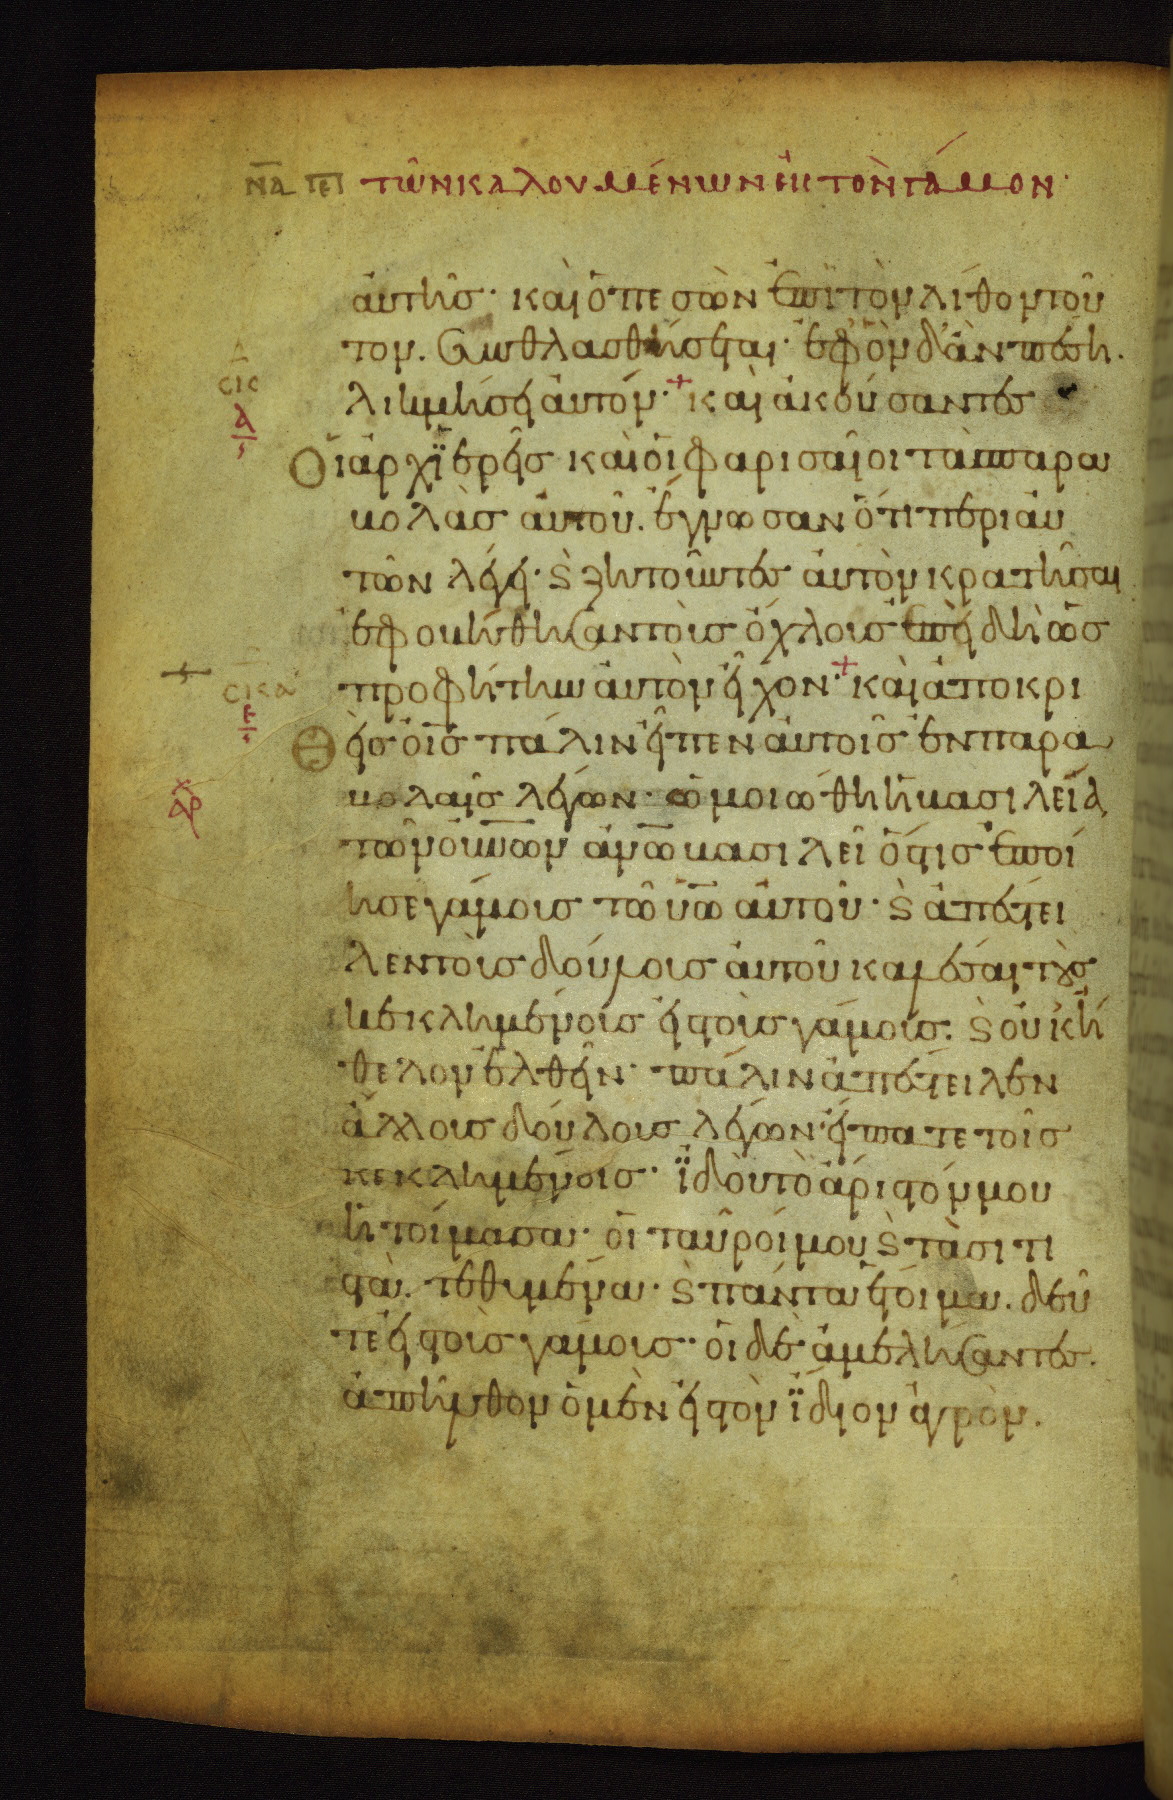 ν̅α̅ πε τῶν καλουμένων εἰς τὸν γάμον·
αὐτῆς· καὶ ὁ πεσὼν ἐπὶ τὸν λίθον τοῦ
τον. συνθλασθήσεται· ἐφ ὃν δ ἂν πέση.
λικμήσει αὐτόν· + καὶ ἀκούσαντες
σις
α
Οἱ ἀρχϊερεῖς καὶ οἱ φαρισαῖοι τὰς παρα
βολὰς αὐτοῦ. ἔγνωσαν ὅτι περι αὐ
τῶν λέγει· ϗ ζητοῦντες αὐτὸν κρατῆσαι
ἐφοβήθησαν τοὺς ὄχλους ἐπειδὴ ὡς
προφήτην αὐτὸν εἶχον· + καὶ ἀποκρι
σικα
ε
Θεὶς ὁ ι̅ς̅ πάλιν εἶπεν αὐτοῖς ἐν παρα
βολαῖς λέγων· ὡμοιώθη ἡ βασιλεία
τῶν ο̅υ̅ν̅ω̅ν̅ α̅ν̅ω̅ βασιλεῖ ὅστις ἐποί
ησε γάμους τῶ υ̅ω̅ αὐτοῦ· ϗ ἀπέστει
λεν τοὺς δούλους αὐτοῦ καλέσαι τοὺς
κεκλημένους εἰς τοὺς γάμους. ϗ οὐκ ἤ
θελον ἐλθεῖν· πάλιν ἀπέστειλεν
ἄλλους δούλους λέγων· εἴπατε τοῖς
κεκλημένοις· ἰ̈δοὺ τὸ ἄριστόν μου
ἡτοίμασα· οἱ ταῦροί μου ϗ τὰ σιτι
στὰ. τεθυμένα· ϗ πάντα ἕτοιμα. δεῦ
τε εἰς τοὺς γάμους· οἱ δὲ ἀμελήσαντες.
ἀπῆλθον ὁ μὲν εἰς τὸν ἴ̈διον ἀγρὸν.